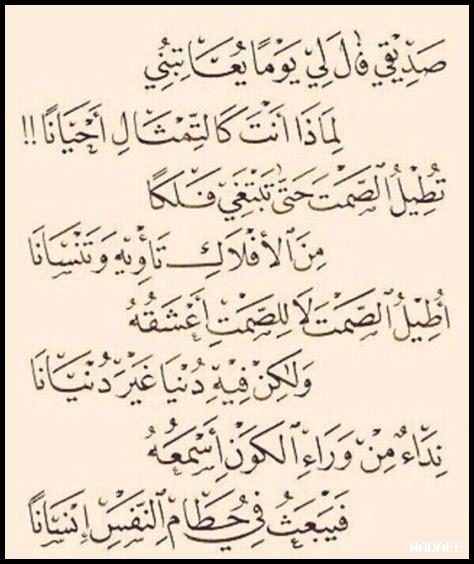 صَدِيقِي قَالَ لِي يَوْمًا يُعَاتِبُنِي
لِمَاذَا أَنْتَ كَالتِّمْثَالِ أَحْيَانًا !!
تُطِيلُ الصَّمْتَ حَتَّى تَبْتَغِي فَلَكًا
مِنَ الْأَفْلَاكِ تَأْوِيهِ وَتَنْسَانَا
أُطِيلُ الصَّمْتَ لَا لِلصَّمْتِ أَعْشَقُهُ
وَلَكِنْ فِيهِ دُنْيَا غَيْرَ دُنْيَانَا
نِدَاءٌ مِنْ وَرَاءِ الْكَوْنِ أَسْمَعُهُ
فَيَبْعَثُ فِي حُطَامِ النَّفْسِ إِنْسَانًا
WADAEF